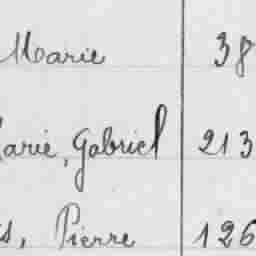 Marie 38
Marie, Gabriel 213
s, Pierre 126